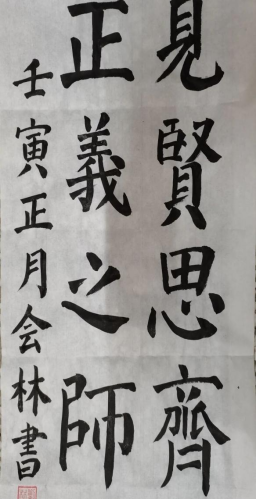 見賢思齊
正義之師
壬寅正月会林書